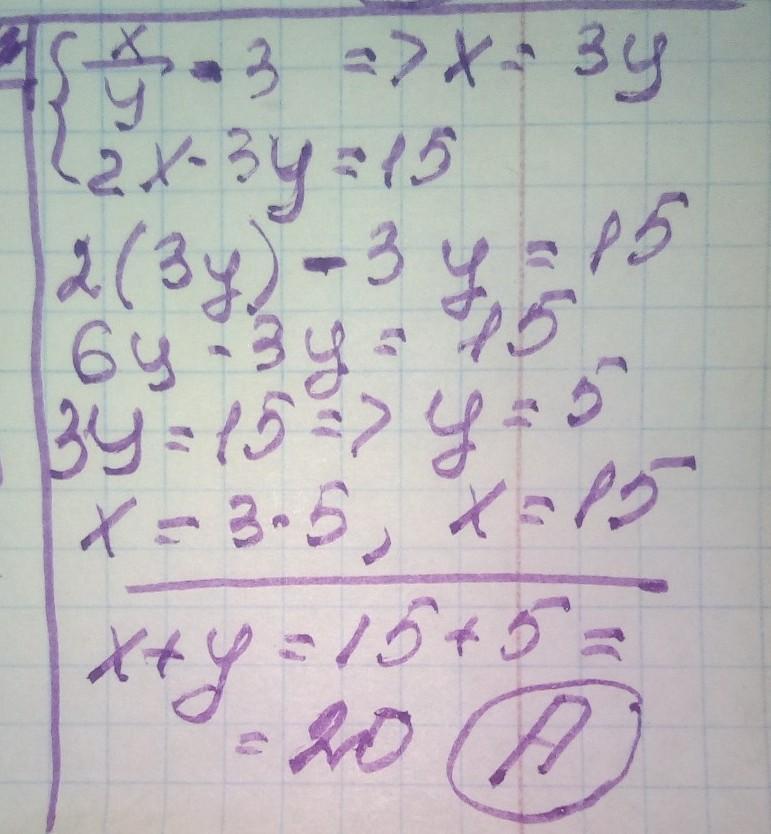 { x/y = 3 => x = 3y
2x - 3y = 15
2(3y) - 3y = 15
6y - 3y = 15
3y = 15 => y = 5
x = 3·5, x = 15
x + y = 15 + 5 =
= 20 A